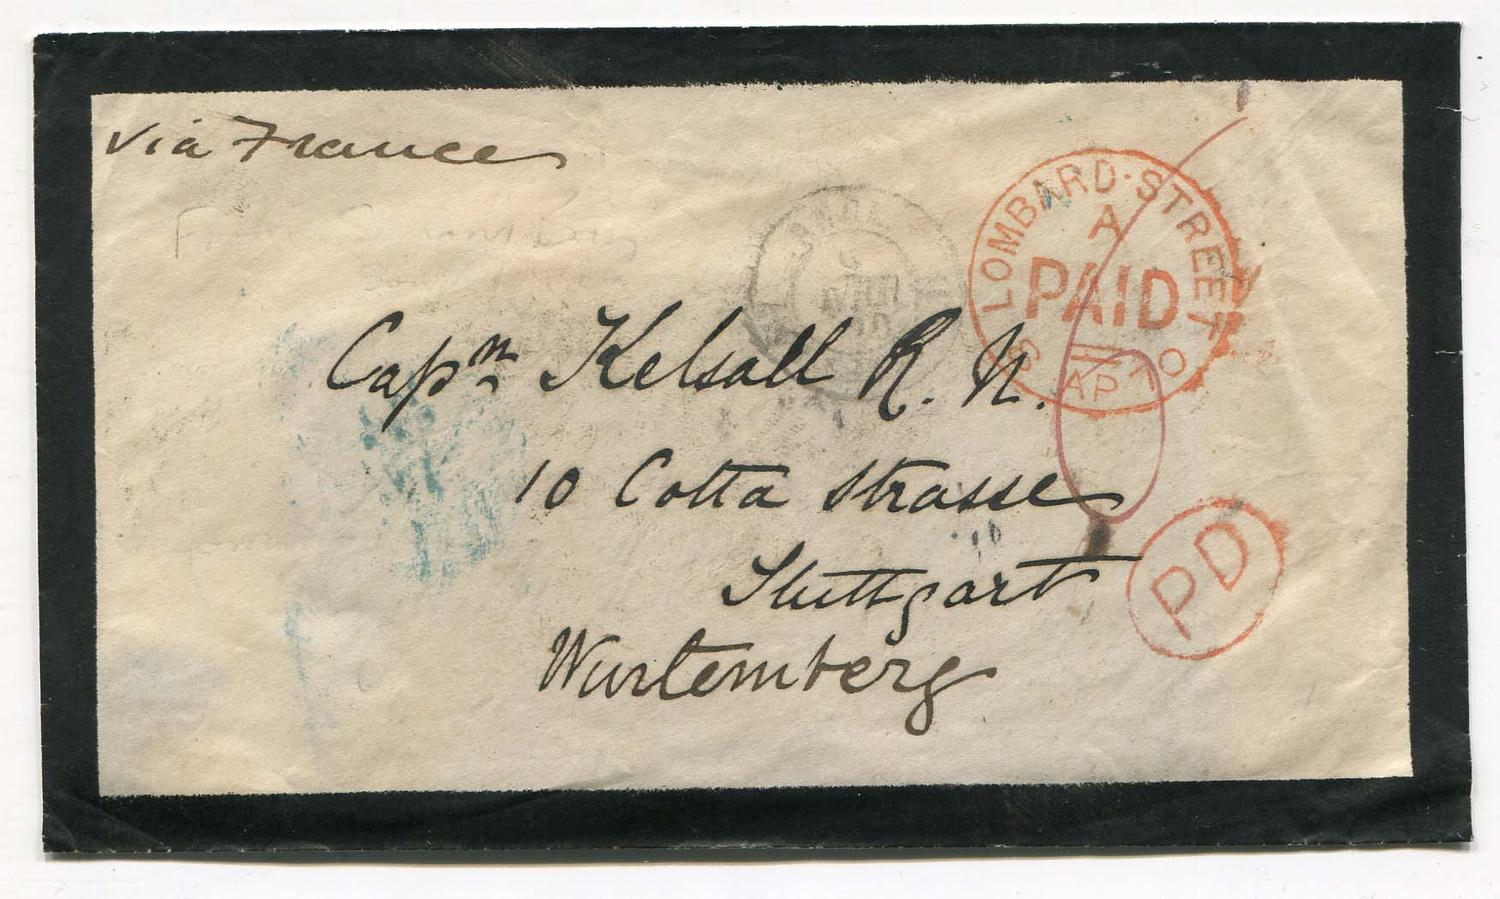 via France
LOMBARD·STREET
A
PAID
AP
Capⁿ Kelsall R. N.
10 Cotta Strasse
Stuttgart
Wurtemberg
PD